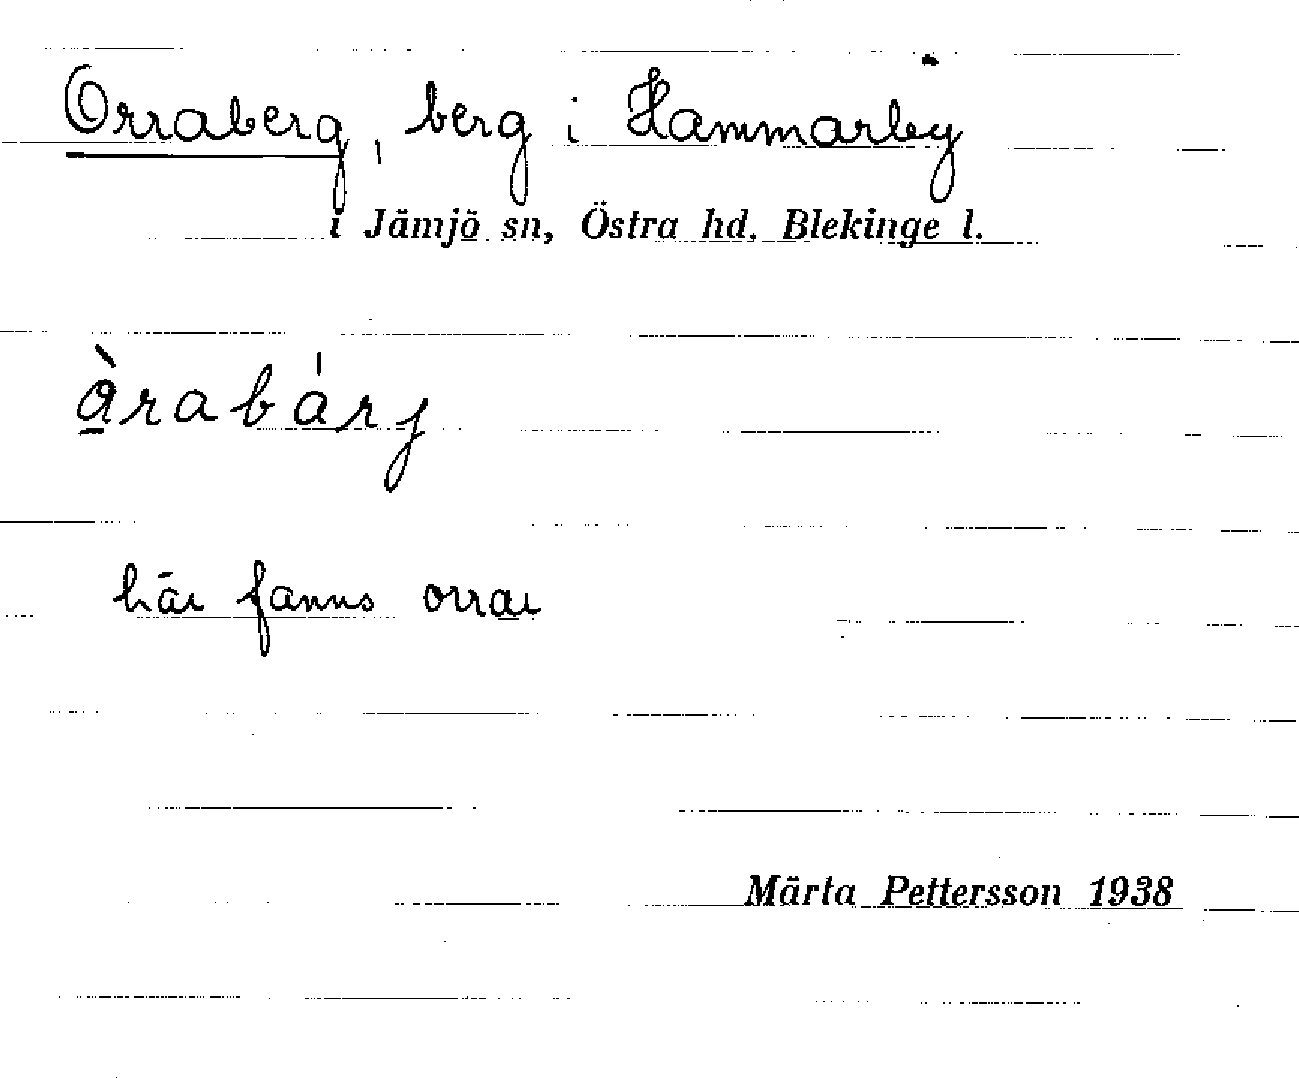 Orraberg, berg i Hammarby
i Jämjö sn, Östra hd. Blekinge l.
àrabárj
här fanns orrar
Märta Pettersson 1938